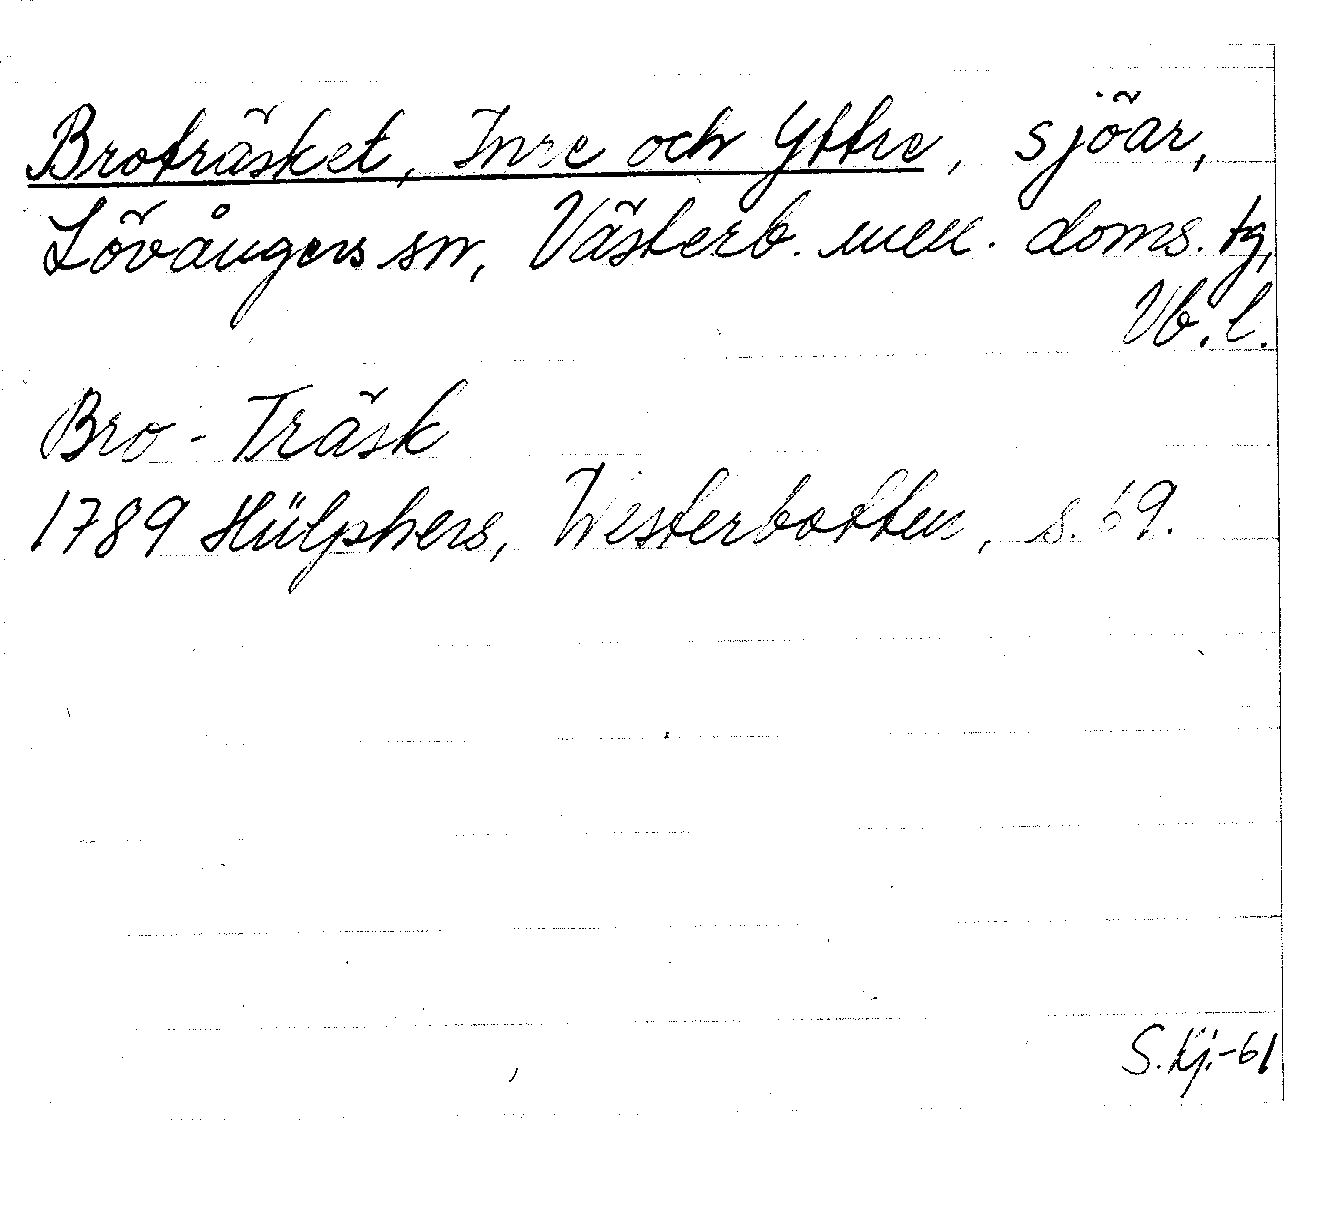 Broträsket, Inre och Yttre, sjöar,
Lövångers sn, Västerb. mell. doms. tg,
Vb. l.
Bro-Träsk
1789 Hülphers, Westerbotten, s. 69.
S. Lj.-61